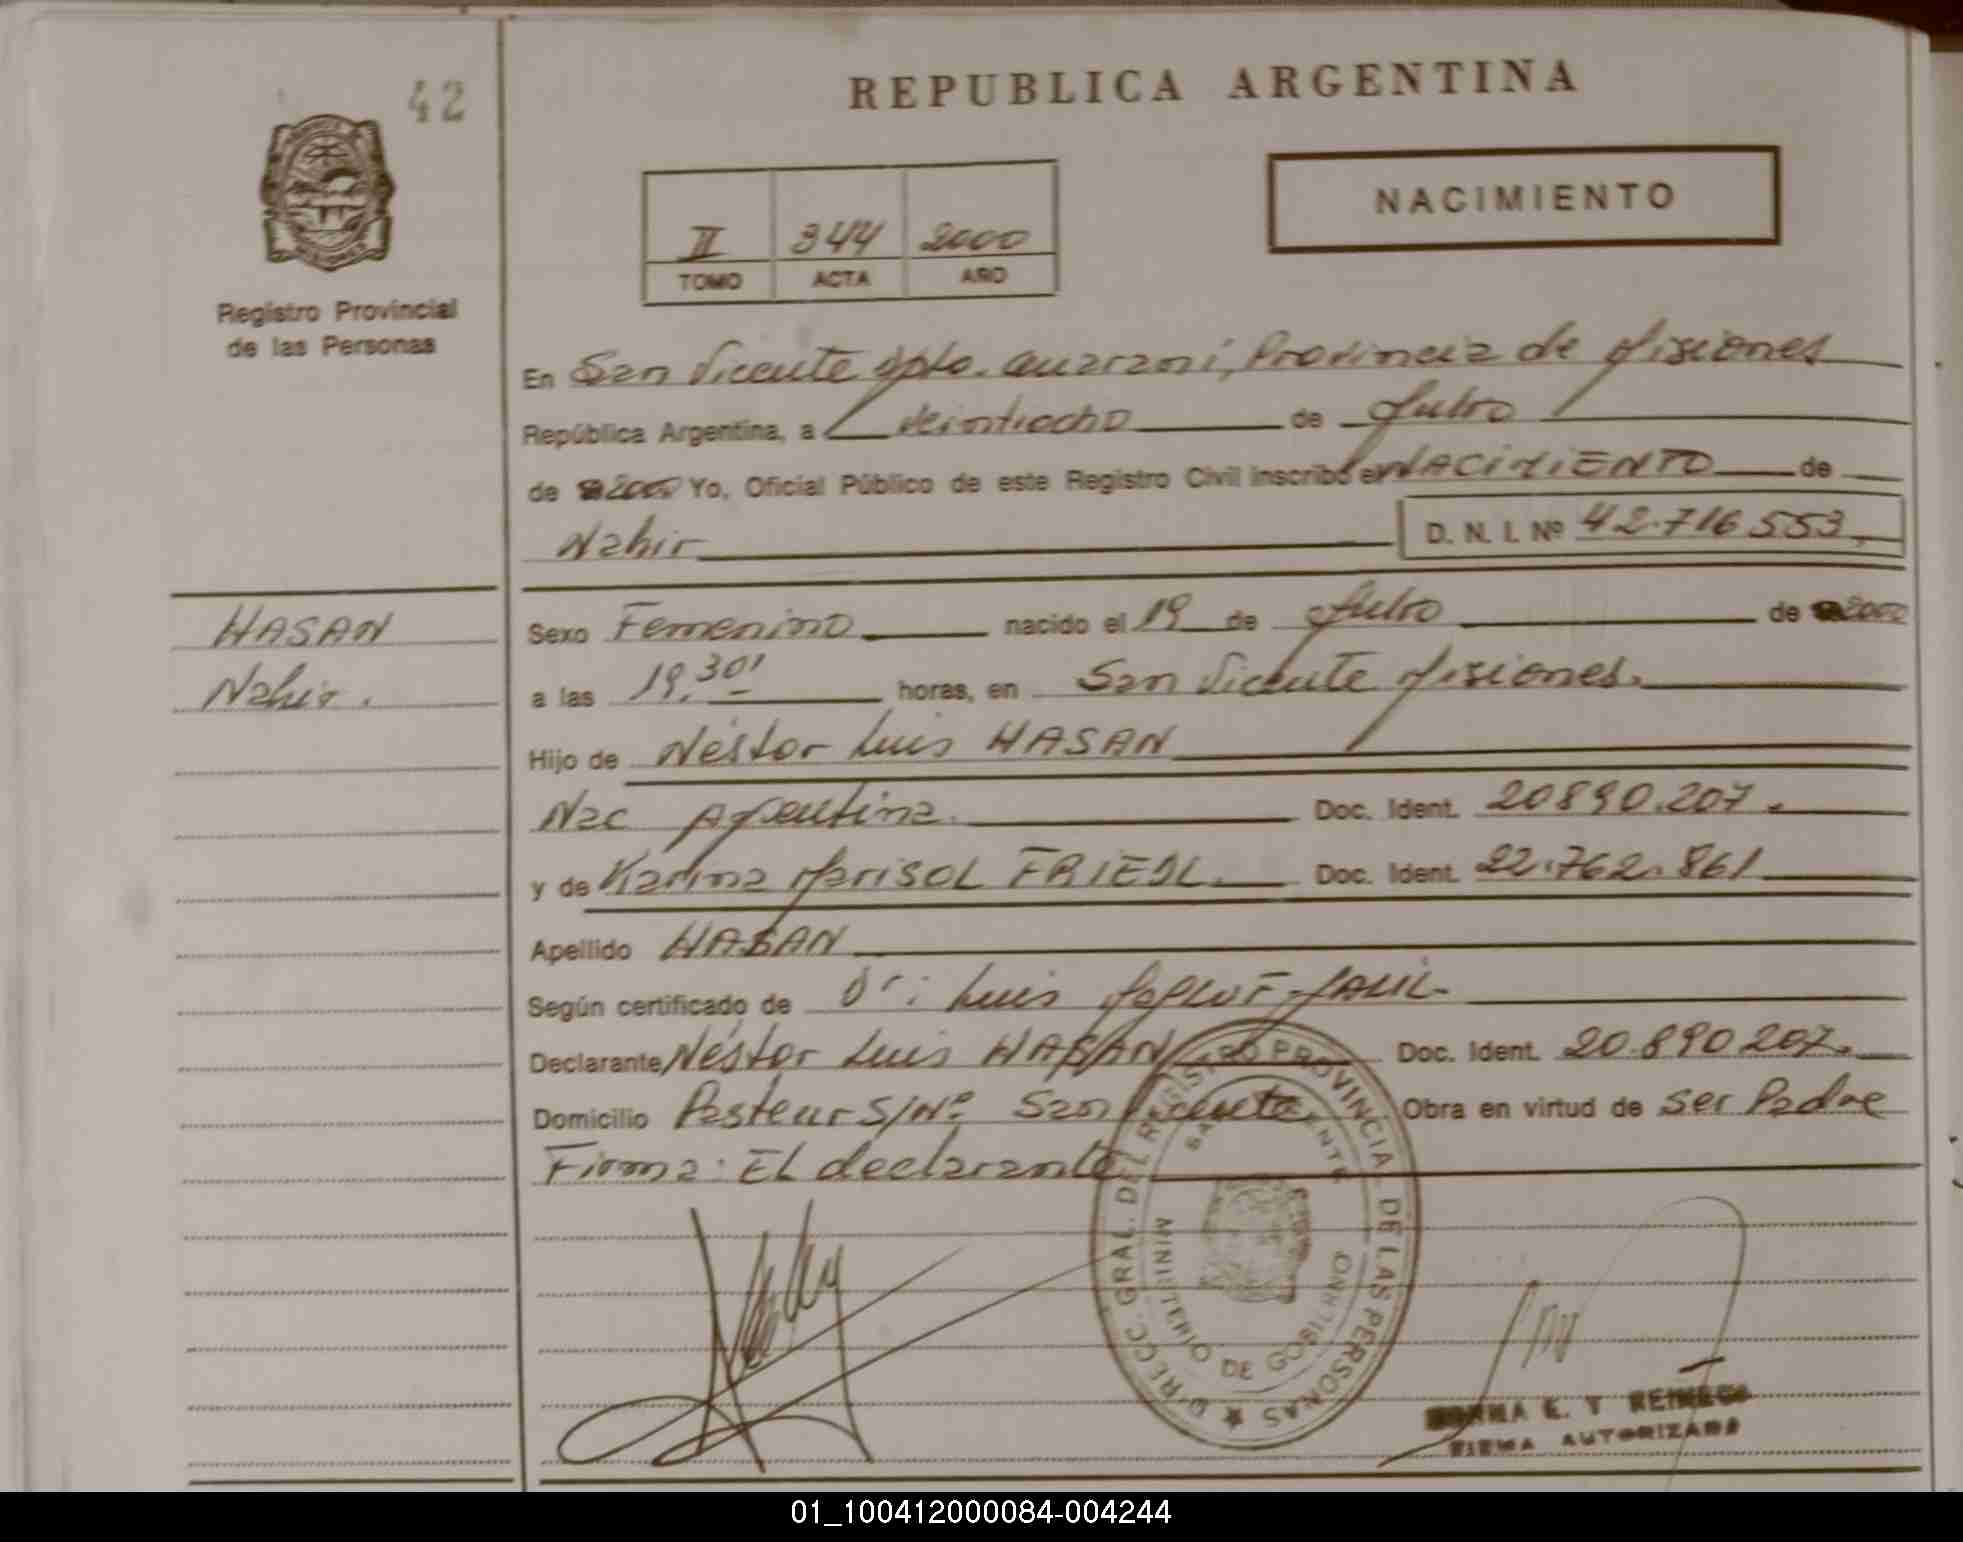 42
REPUBLICA ARGENTINA
NACIMIENTO
II 344 2000
TOMO ACTA AÑO
Registro Provincial
de las Personas
En San Vicente Dpto. Guaraní, Provincia de Misiones
República Argentina, a veintiocho de Julio
de 2000 Yo, Oficial Público de este Registro Civil inscribo el NACIMIENTO de
Nahir D. N. I. Nº 42.716.553
HASAN
Nahir.
Sexo Femenino nacido el 19 de Julio de 2000
a las 19,30' horas, en San Vicente Misiones.
Hijo de Néstor Luis HASAN
Nac Argentina. Doc. Ident. 20890.207.
y de Karina Marisol FRIEDL. Doc. Ident. 22.762.861
Apellido HASAN
Según certificado de Dr: Luis
Declarante Néstor Luis HASAN Doc. Ident. 20.890.207.
Domicilio Pasteur S/Nº San Vicente Obra en virtud de ser Padre
Firma: EL declarante
DIRECC. GRAL. DEL REGISTRO PROVINCIAL DE LAS PERSONAS
SAN VICENTE
MINISTERIO DE GOBIERNO
E. T
FIRMA AUTORIZADA
01_100412000084-004244